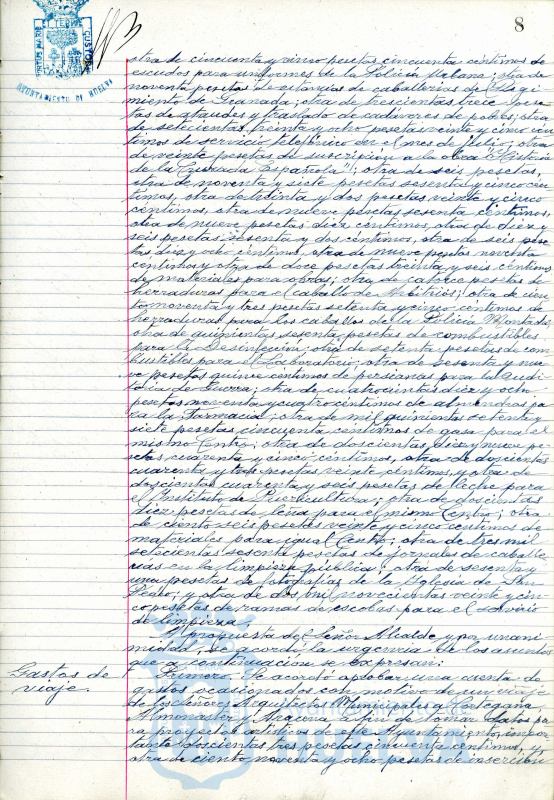 8
AYUNTAMIENTO DE HUELVA
otra de cincuenta y cinco pesetas cincuenta centimos de
escudos para uniformes de la Policia Urbana; otra de
noventa pesetas de estancias de caballerias del Regi-
miento de Granada; otra de trescientas trece pese-
tas de ataudes y traslado de cadaveres de pobres; otra
de setecientas treinta y ocho pesetas veinte y cinco cen-
timos de servicio telefonico en el mes de Julio; otra
de veinte pesetas de suscripcion a la obra "Historia
de la Cruzada Española"; otra de seis pesetas,
otra de noventa y siete pesetas sesenta y cinco cen-
timos, otra de treinta y dos pesetas veinte y cinco
centimos, otra de nueve pesetas sesenta centimos,
otra de nueve pesetas diez centimos, otra de diez y
seis pesetas sesenta y dos centimos, otra de seis pese-
tas diez y ocho centimos, otra de nueve pesetas noventa
centimos y otra de doce pesetas treinta y seis centimos
de materiales para obras; otra de catorce pesetas de
herraduras para el caballo de Arbitrios; otra de cien-
to noventa y tres pesetas setenta y cinco centimos de
herraduras para los caballos de la Policia Montada;
otra de quinientas sesenta pesetas de combustibles
para la Desinfección; otra de setenta pesetas de com-
bustibles para el Laboratorio; otra de sesenta y nue-
ve pesetas quince centimos de persianas para la Audi-
toria de Guerra; otra de cuatrocientas diez y ocho
pesetas noventa y cuatro centimos de
ra la Farmacia; otra de mil quinientas setenta y
siete pesetas cincuenta centimos de gasa para el
mismo Centro; otra de doscientas diez y nueve pe-
setas cuarenta y cinco centimos, otra de doscientas
cuarenta y tres pesetas veinte centimos, y otra de
doscientas cuarenta y seis pesetas de leche para
el Instituto de Puericultura; otra de doscientas
diez pesetas de leña para el mismo Centro; otra
de ciento seis pesetas veinte y cinco centimos de
materiales para igual Centro; otra de tres mil
setecientas sesenta pesetas de jornales de caballe-
rias en la limpieza publica; otra de sesenta y
una pesetas de fotografias de la Iglesia de San
Pedro; y otra de dos mil novecientas veinte y cin-
co pesetas de ramas de escobas para el servicio
de limpieza.
A propuesta del Señor Alcalde y por unani-
midad, se acordó la urgencia de los asuntos
que a continuacion se expresan:
Gastos de
viaje.
Primero. Se acordó aprobar una cuenta de
gastos ocasionados con motivo de un viaje
de los Señores Arquitectos Municipales a Cortegana,
Almonaster y Aracena a fin de tomar datos pa-
ra proyectos artisticos de este Ayuntamiento, impor-
tante doscientas tres pesetas cincuenta centimos, y
otra de ciento noventa y ocho pesetas de inserción